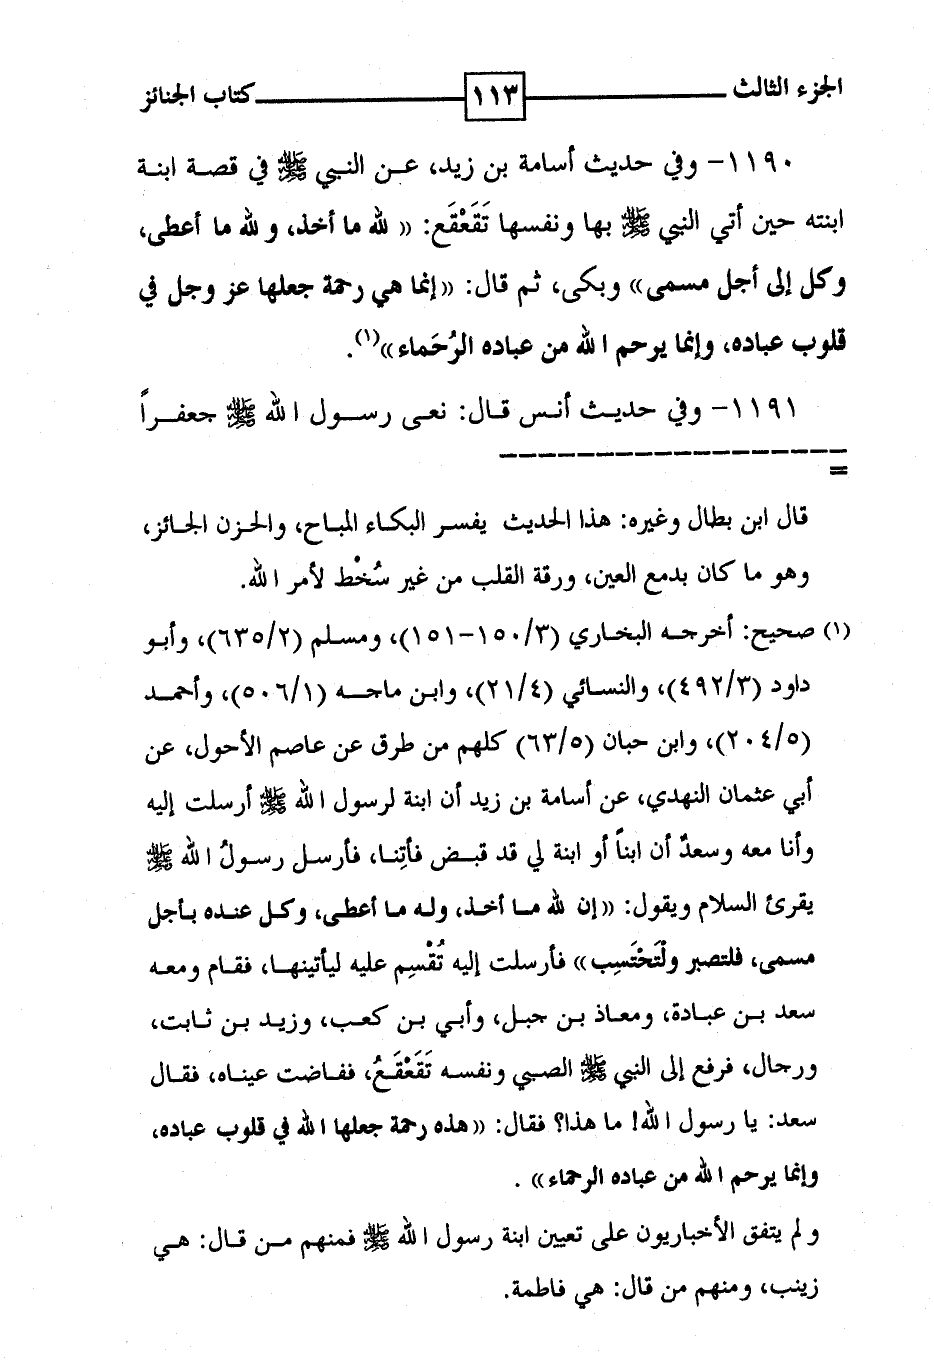 الجزء الثالث ١١٣ كتاب الجنائز
١١٩٠- وفي حديث أسامة بن زيد، عـن النبي ﷺ في قصـة ابنـة
ابنته حين أتي النبي ﷺ بها ونفسها تَقَعْقَع: «لله ما أخذ، و لله ما أعطى،
وكل إلى أجل مسمى» وبكى، ثم قال: «إنما هي رحمة جعلها عز وجل في
قلوب عباده، وإنما يرحم الله من عباده الرُحَماء»(١).
١١٩١- وفي حديث أنس قـال: نعـى رسـول الله ﷺ جعفـراً
=
قال ابن بطال وغيره: هذا الحديث يفسر البكـاء المباح، والحـزن الجـائز،
وهو ما كان بدمع العين، ورقة القلب من غير سُخْط لأمر الله.
(١) صحيح: أخرجـه البخـاري (١٥٠/٣-١٥١)، ومسلم (٦٣٥/٢)، وأبـو
داود (٤٩٢/٣)، والنسـائي (٢١/٤)، وابـن ماجـه (٥٠٦/١)، وأحمـد
(٢٠٤/٥)، وابن حبان (٦٣/٥) كلهم من طرق عن عاصم الأحول، عن
أبي عثمان النهدي، عن أسامة بن زيد أن ابنة لرسول الله ﷺ أرسلت إليه
وأنا معه وسعدٌ أن ابناً أو ابنة لي قد قبـض فأتِنـا، فأرسـل رسـولُ الله ﷺ
يقرئ السلام ويقول: «إن لله مـا أخـذ، ولـه مـا أعطـى، وكـل عنـده بـأجل
مسمى، فلتصبر ولْتَحْتَسِب» فأرسلت إليه تُقْسِم عليه ليأتينهـا، فقـام ومعـه
سعد بـن عبـادة، ومعـاذ بـن جبـل، وأبـي بـن كعـب، وزيـد بـن ثـابت،
ورجال، فرفع إلى النبي ﷺ الصبـي ونفسـه تَقَعْقَـعُ، ففـاضت عينـاه، فقـال
سعد: يا رسول الله! ما هذا؟ فقال: «هذه رحمة جعلها الله في قلوب عباده،
وإنما يرحم الله من عباده الرحماء» .
و لم يتفق الأخباريون على تعيين ابنة رسول الله ﷺ فمنهم مـن قـال: هـي
زينب، ومنهم من قال: هي فاطمة.